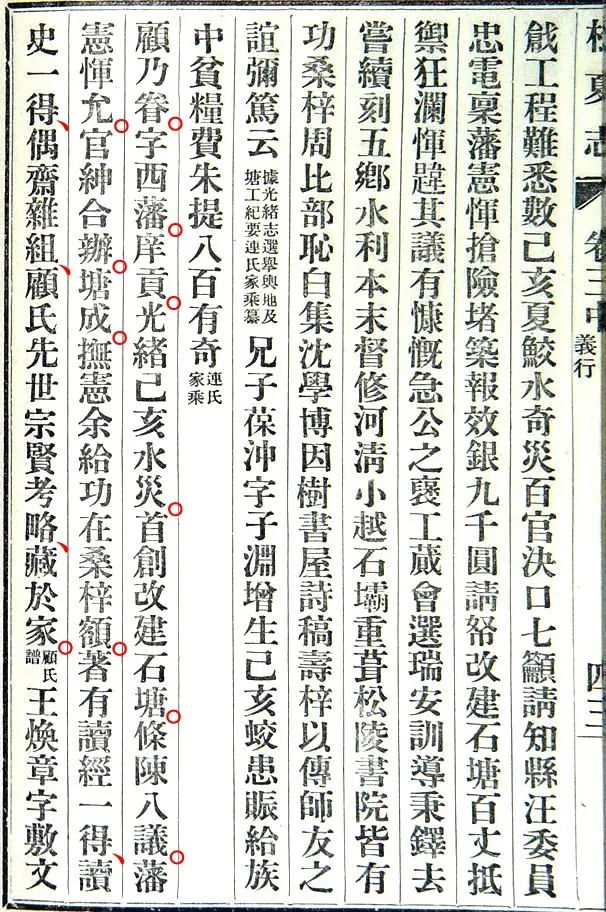 松夏志 卷三中 義行 四三
戧工程難悉數己亥夏鮫水奇災百官決口七籲請知縣汪委員
忠電稟藩憲惲搶險堵築報效銀九千圓請帑改建石塘百丈抵
禦狂瀾惲韙其議有慷慨急公之襃工蕆會選瑞安訓導秉鐸去
嘗續刻五鄉水利本末督修河淸小越石壩重葺松陵書院皆有
功桑梓周比部恥白集沈學博因樹書屋詩稿壽梓以傳師友之
誼彌篤云據光緒志選舉輿地及塘工紀要連氏家乘纂兄子葆沖字子淵增生己亥蛟患賑給族
中貧糧費朱提八百有奇連氏家乘
顧乃眷字西藩庠貢光緒己亥水災首創改建石塘條陳八議藩
憲惲允官紳合辦塘成撫憲余給功在桑梓額著有讀經一得讀
史一得偶齋雜組顧氏先世宗賢考略藏於家顧氏譜王煥章字敷文